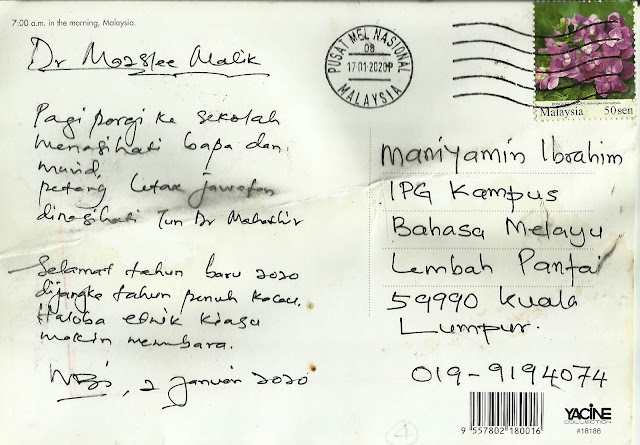 7:00 a.m. in the morning, Malaysia.
Dr Maszlee Malik
Pagi pergi ke sekolah
menasihati bapa dan
murid,
petang letak jawatan
dinasihati Tun Dr Mahathir
Selamat tahun baru 2020
dijangka tahun penuh kacau.
Haloba etnik kiasu
makin membara.
, 2 Januari 2020
PUSAT MEL NASIONAL
08
17-01-2020
MALAYSIA
Malaysia 50 sen
Maniyamin Ibrahim
IPG Kampus
Bahasa Melayu
Lembah Pantai
59990 Kuala
Lumpur.
019-9194074
9 557802 180016
YACINE
COLLECTION
#18186
4